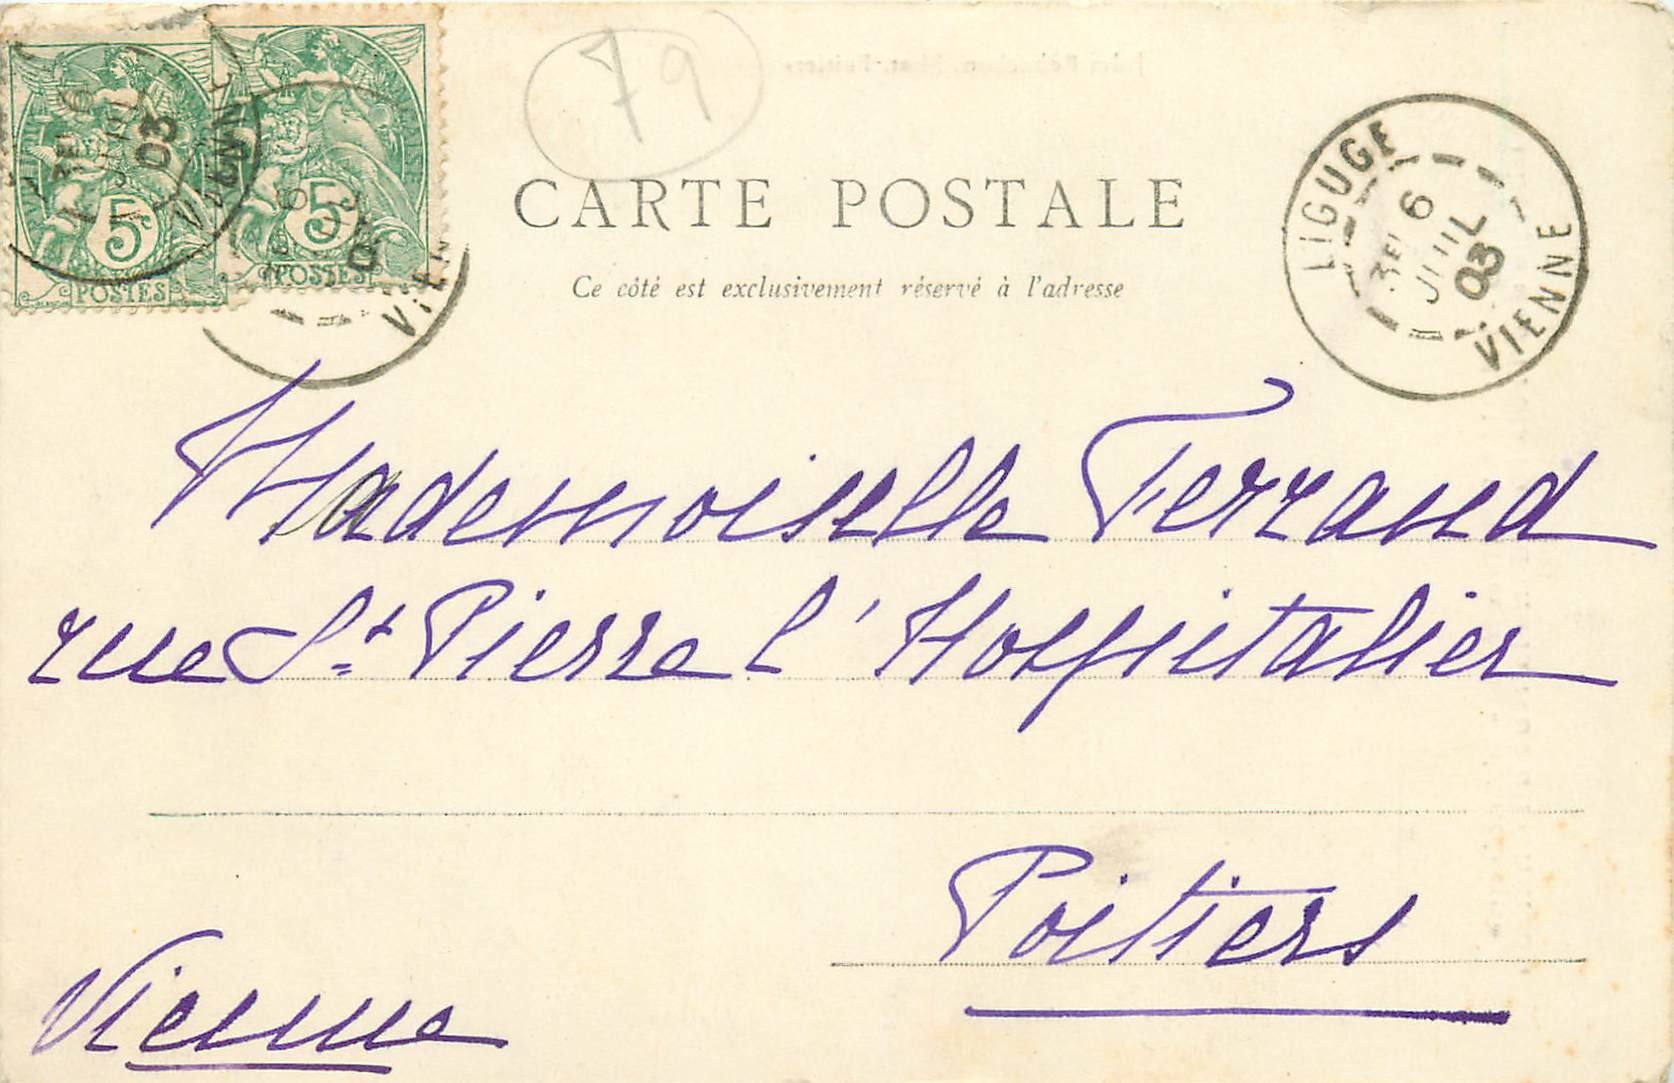 79
CARTE POSTALE
Ce côté est exclusivement réservé à l'adresse
5c
POSTES
5c
POSTES
LIGUGE
3E 6
JUIL
03
VIENNE
Mademoiselle Ferrand
rue St Pierre l'Hospitalier
Poitiers
Vienne